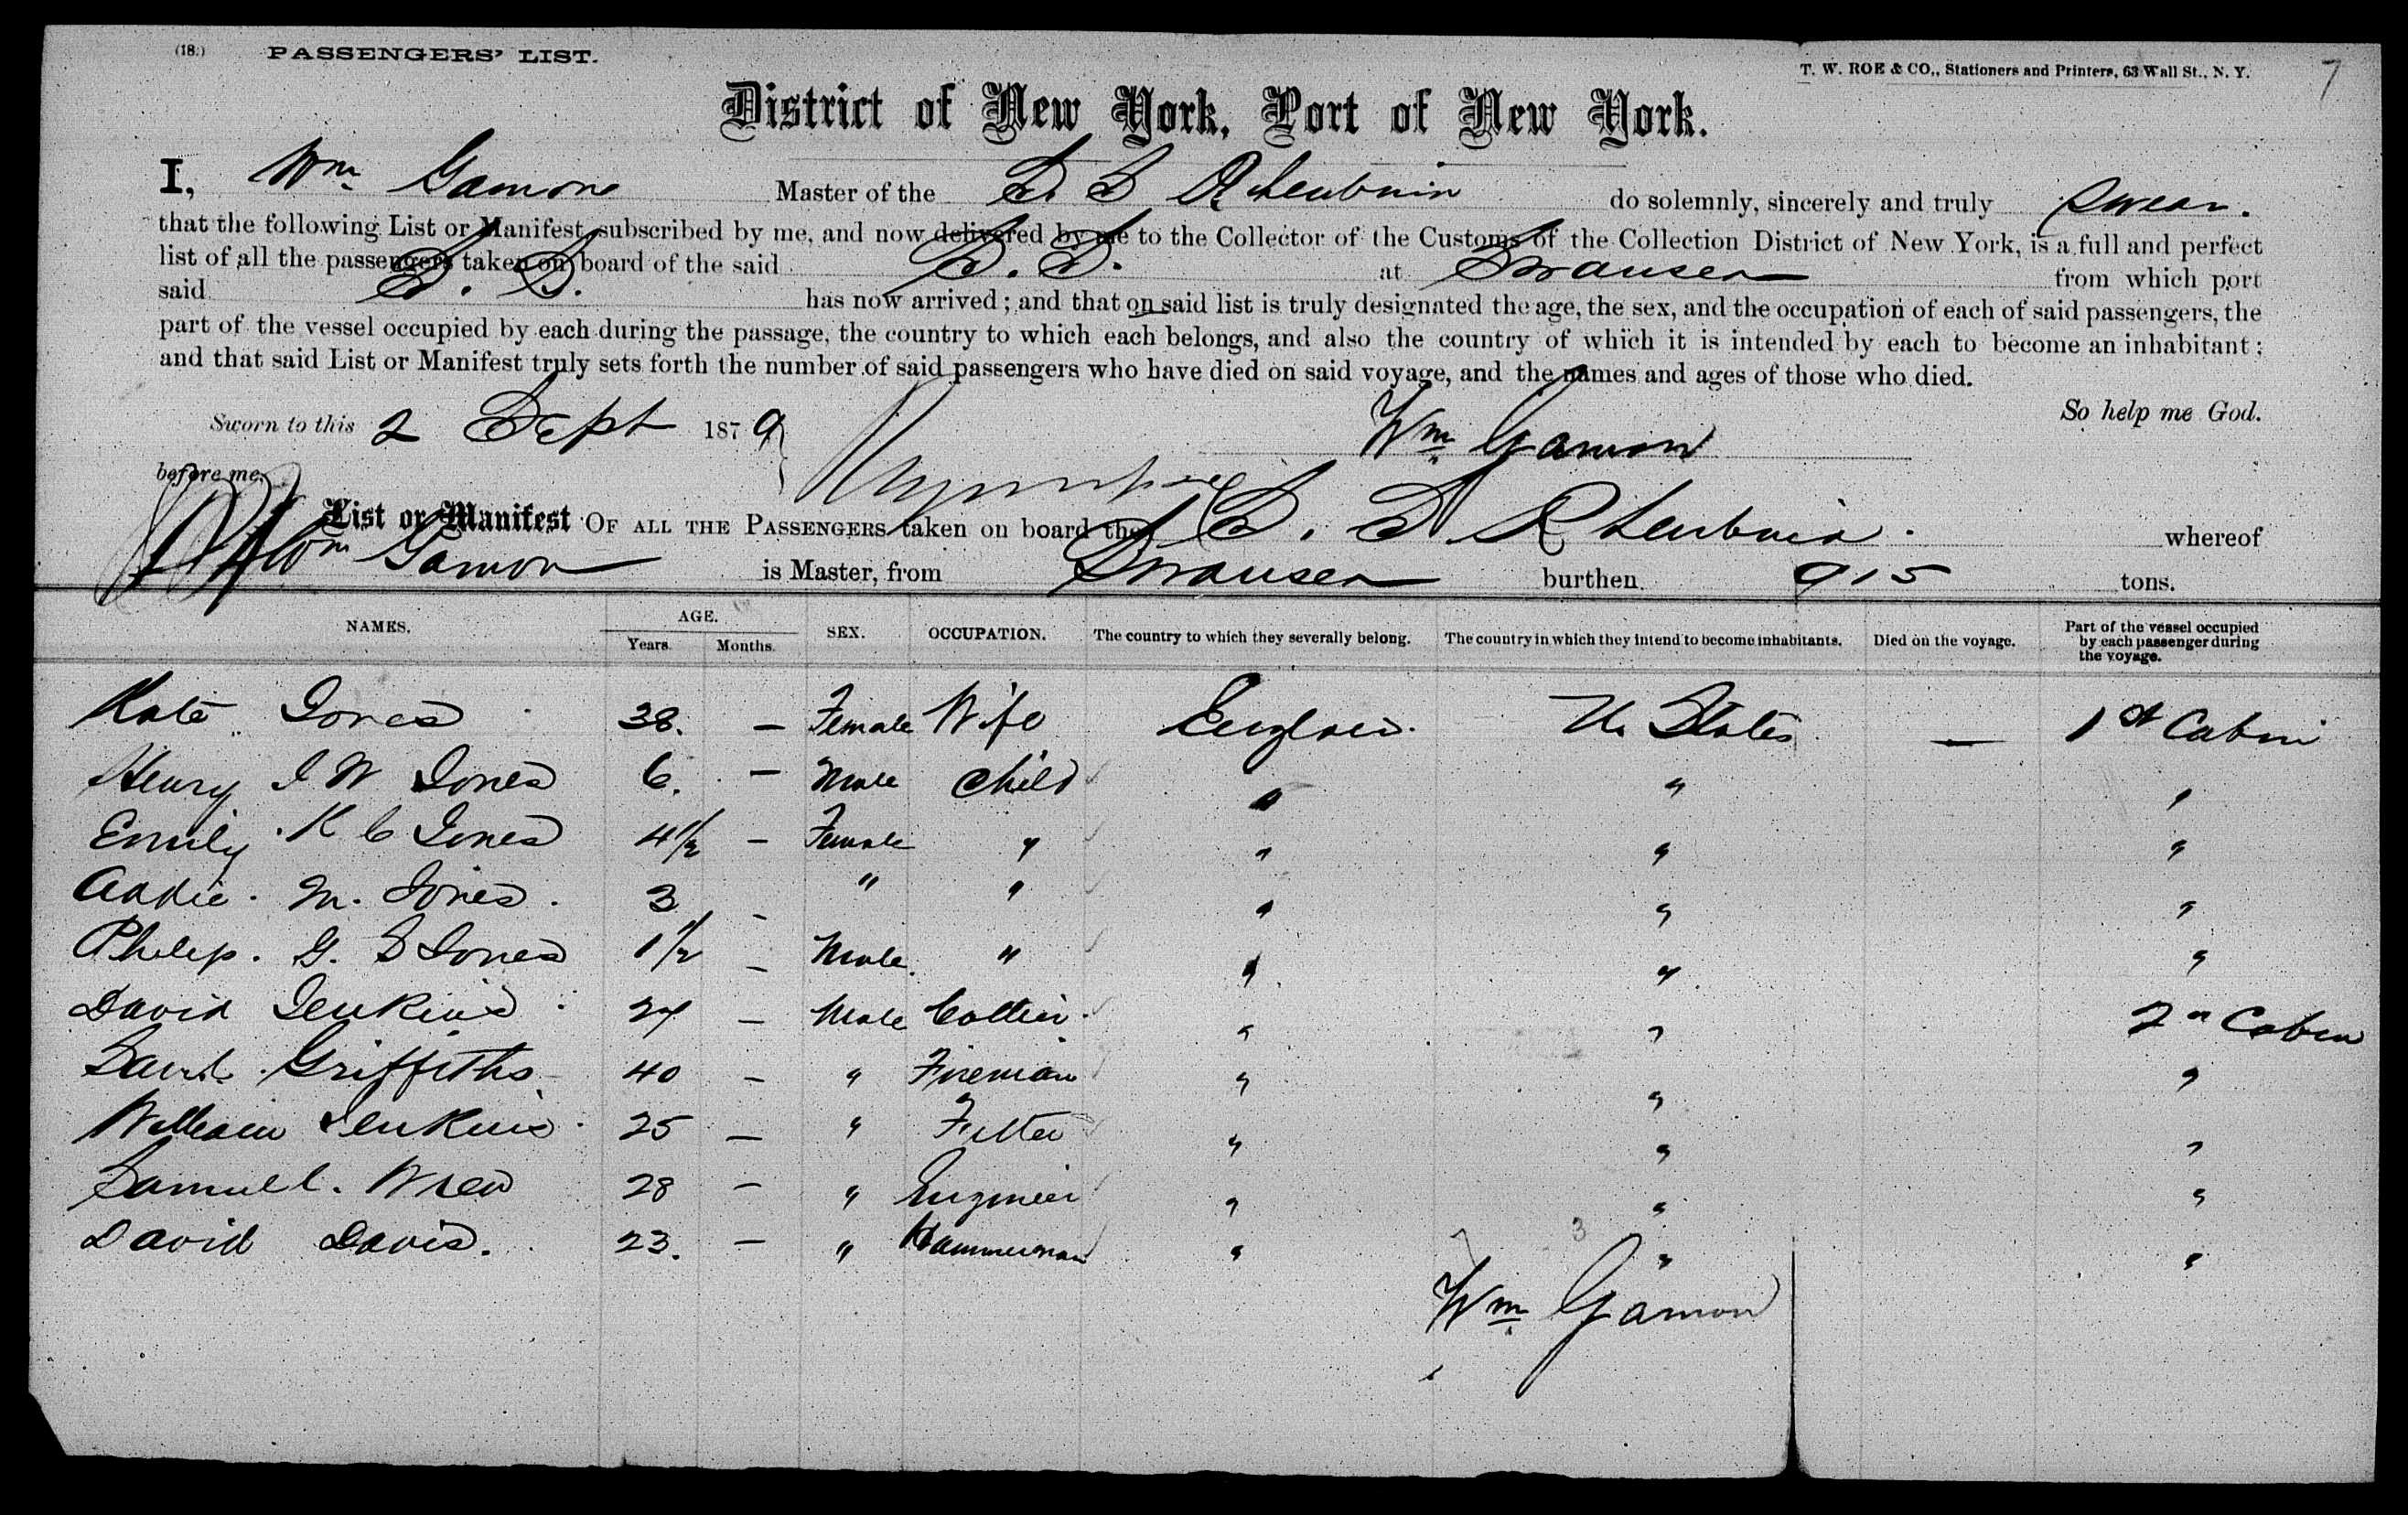 (18.) PASSENGERS' LIST.
T. W. ROE & CO., Stationers and Printers, 63 Wall St., N. Y. 7
District of New York, Port of New York.
I, Wm Gamon Master of the S. S. Rheubina do solemnly, sincerely and truly swear.
that the following List or Manifest, subscribed by me, and now delivered by me to the Collector of the Customs of the Collection District of New York, is a full and perfect
list of all the passengers taken on board of the said S. S. at Swansea from which port
said S. S. has now arrived; and that on said list is truly designated the age, the sex, and the occupation of each of said passengers, the
part of the vessel occupied by each during the passage, the country to which each belongs, and also the country of which it is intended by each to become an inhabitant;
and that said List or Manifest truly sets forth the number of said passengers who have died on said voyage, and the names and ages of those who died.
So help me God.
Sworn to this 2 Sept 1879
Wm Gamon
before me,
List or Manifest OF ALL THE PASSENGERS taken on board the S. S Rheubina whereof
Wm Gamon is Master, from Swansea burthen 915 tons.
NAMES. AGE. Years. Months. SEX. OCCUPATION. The country to which they severally belong. The country in which they intend to become inhabitants. Died on the voyage. Part of the vessel occupied by each passenger during the voyage.
Kate Jones 38. — Female Wife England. U. States — 1st Cabin
Henry J W Jones 6. — Male Child " " "
Emily K C Jones 4 1/2 — Female " " " "
Addie. M. Jones. 3 — " " " " "
Philip. G. S Jones 1 1/2 — Male. " " " "
David Jenkins 27 — Male Collier. " " 2n Cabin
Griffiths 40 — " Fireman " " "
William Jenkins 25 — " Fitter " " "
Samuel. 28 — " Engineer " " "
David Davis. 23. — " Hammerman " " "
Wm Gamon